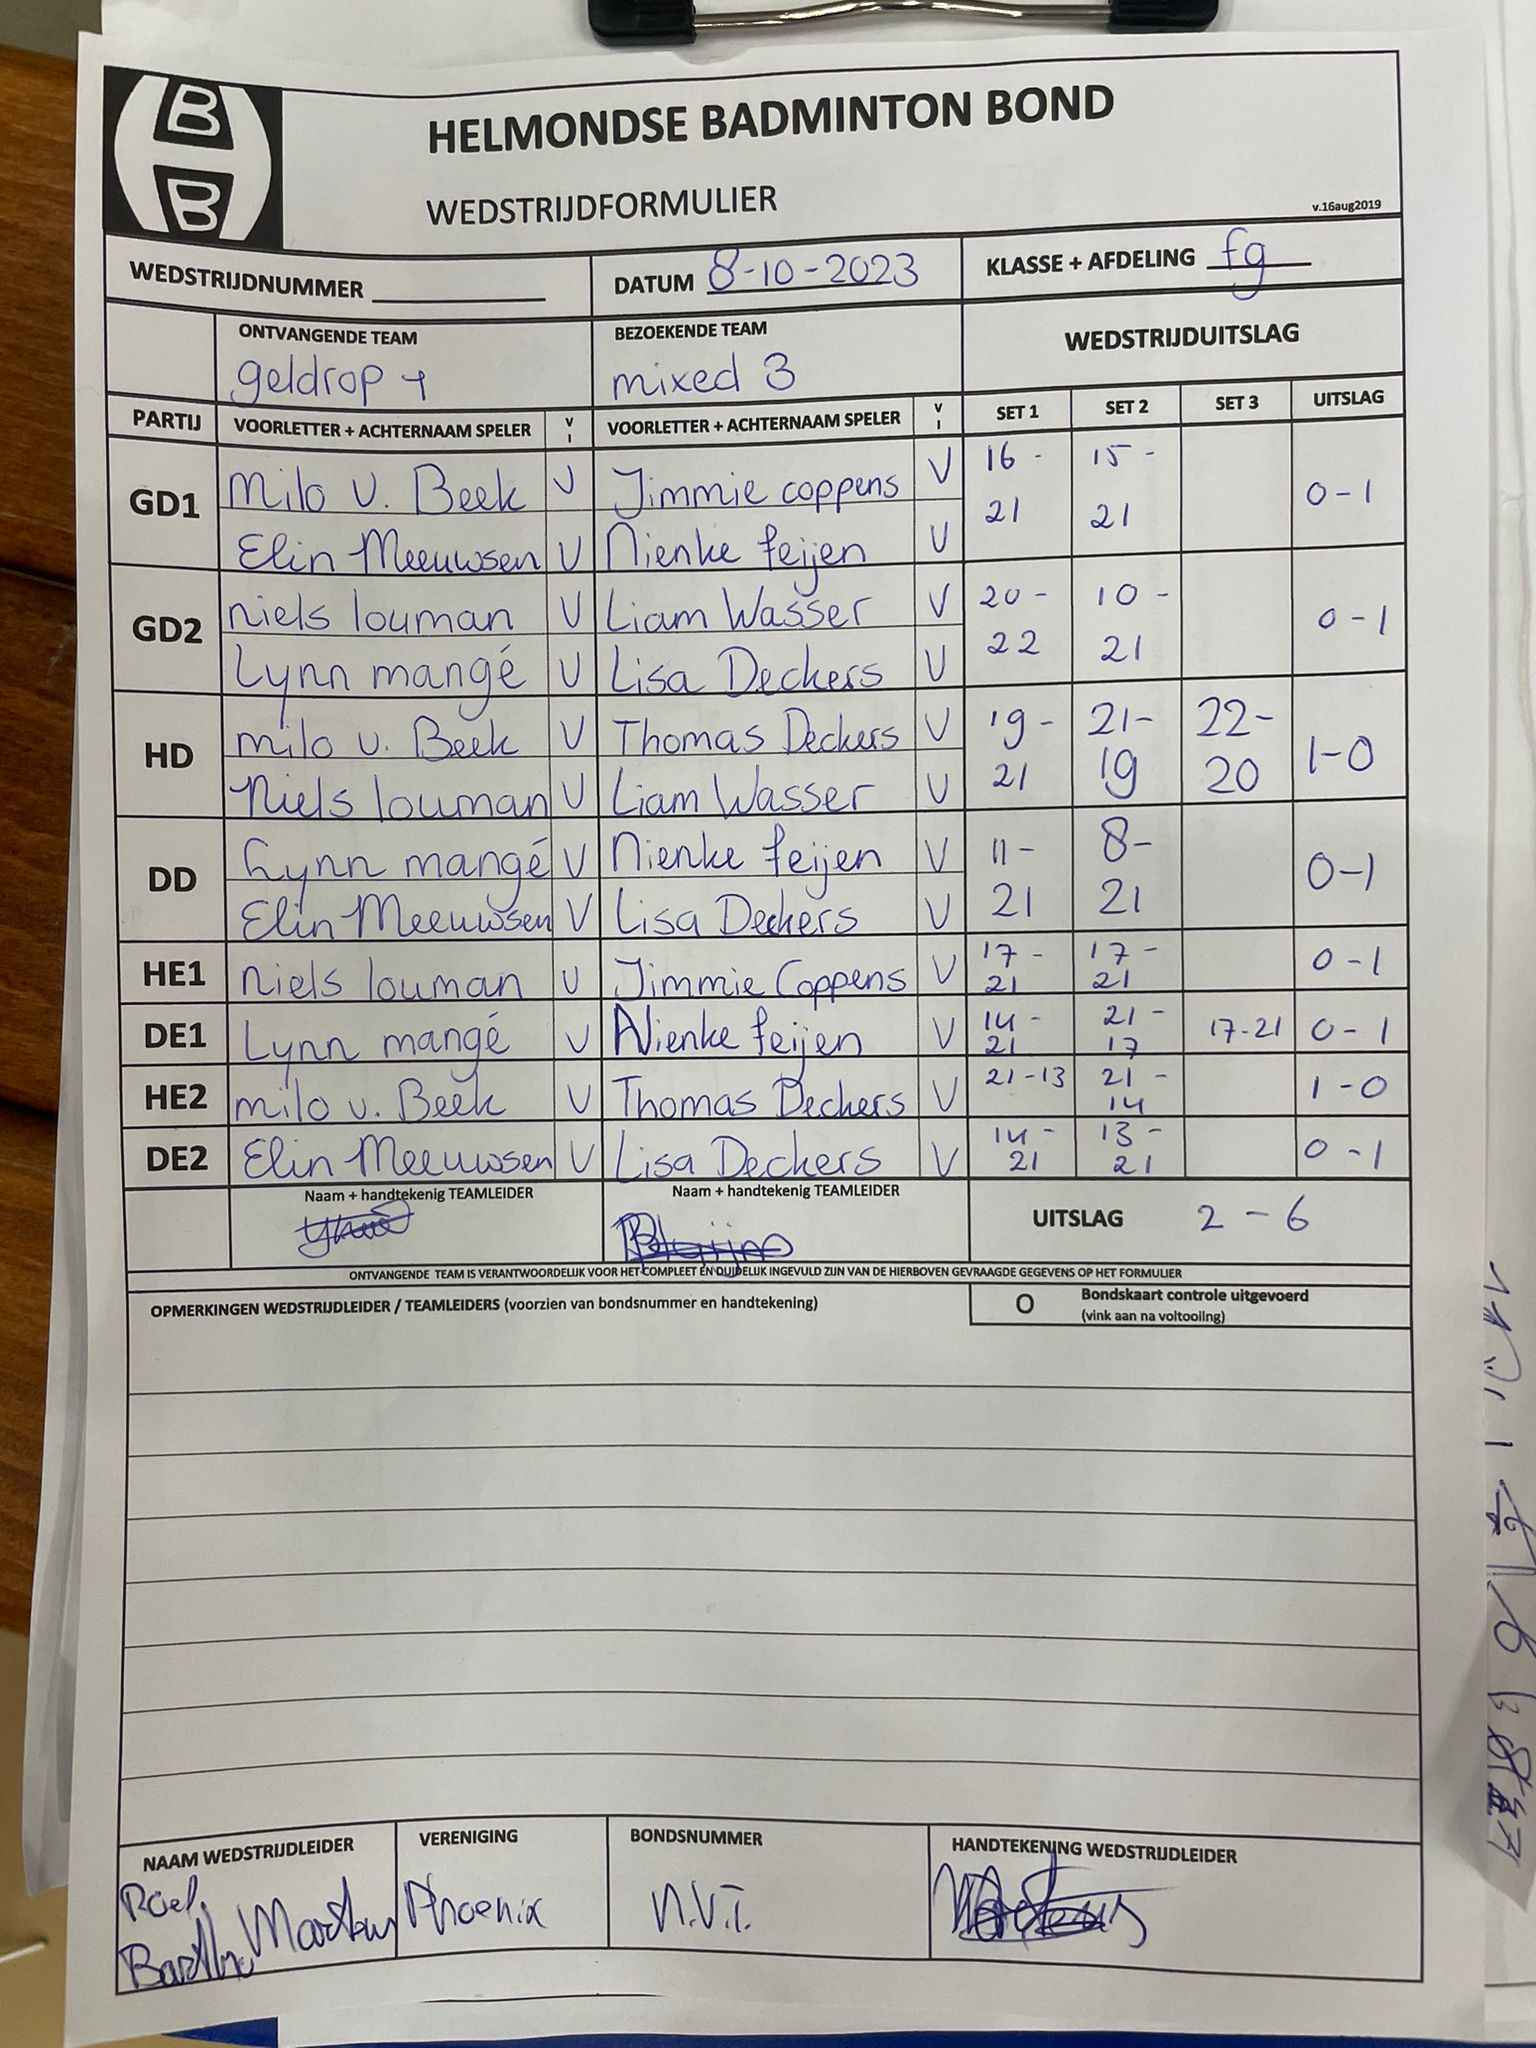 B
B
HELMONDSE BADMINTON BOND
WEDSTRIJDFORMULIER
v.16aug2019
WEDSTRIJDNUMMER
DATUM 8-10-2023
KLASSE + AFDELING fg
ONTVANGENDE TEAM
BEZOEKENDE TEAM
WEDSTRIJDUITSLAG
geldrop
mixed 3
PARTIJ VOORLETTER + ACHTERNAAM SPELER V I VOORLETTER + ACHTERNAAM SPELER V I SET 1 SET 2 SET 3 UITSLAG
GD1 Milo v. Beek V Jimmie Coppens V 16 - 15 - 0-1
Elin Meeuwsen V Nienke feijen V 21 21
GD2 niels louman V Liam Wasser V 20 - 10 - 0-1
Lynn mangé V Lisa Deckers V 22 21
HD milo v. Beek V Thomas Deckers V 19 - 21- 22- 1-0
Niels louman V Liam Wasser V 21 19 20
DD Lynn mangé V Nienke feijen V 11 - 8- 0-1
Elin Meeuwsen V Lisa Deckers V 21 21
HE1 niels louman V Jimmie Coppens V 17 - 21 17 - 21 0-1
DE1 Lynn mangé V Nienke feijen V 14 - 21 21 - 17 17-21 0-1
HE2 milo v. Beek V Thomas Deckers V 21-13 21 - 14 1-0
DE2 Elin Meeuwsen V Lisa Deckers V 14 - 21 13 - 21 0-1
Naam + handtekenig TEAMLEIDER
Naam + handtekenig TEAMLEIDER
UITSLAG 2 - 6
ONTVANGENDE TEAM IS VERANTWOORDELIJK VOOR HET COMPLEET EN DUIDELIJK INGEVULD ZIJN VAN DE HIERBOVEN GEVRAAGDE GEGEVENS OP HET FORMULIER
OPMERKINGEN WEDSTRIJDLEIDER / TEAMLEIDERS (voorzien van bondsnummer en handtekening)
O Bondskaart controle uitgevoerd
(vink aan na voltooiing)
NAAM WEDSTRIJDLEIDER
VERENIGING
BONDSNUMMER
HANDTEKENING WEDSTRIJDLEIDER
Roel
Phoenix
n.v.t.